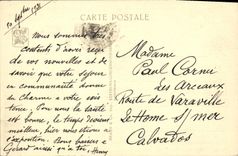 CARTE POSTALE
10 1931
Nous sommes
contents d'avoir reçu
de vos nouvelles et de
savoir que votre séjour
en communauté donne
un charme à votre
Pour la santé
est bonne, le temps devient
meilleur, hier nous étions à
l'exposition. Bons baisers à
Gérard ainsi qu'à toi, Henry
Madame
Paul Cornu
Les Arceaux
Route de Varaville
Le Home s/mer
Calvados